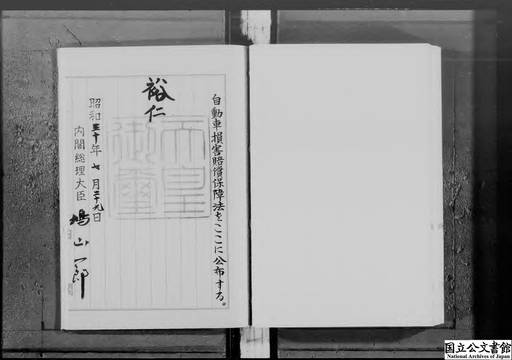 自動車損害賠償保障法をここに公布する。
裕仁
天皇
御璽
昭和三十年七月二十九日
内閣総理大臣 鳩山一郎
国立公文書館
National Archives of Japan